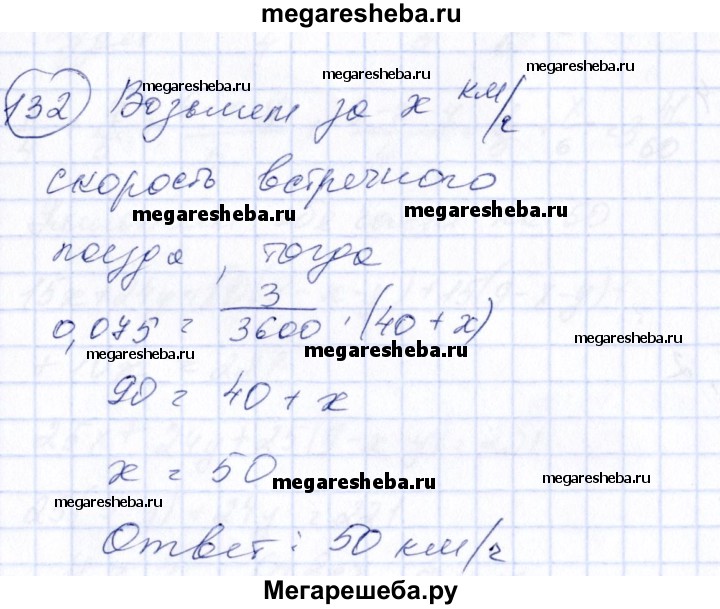 megaresheba.ru
megaresheba.ru
megaresheba.ru
132 Возьмем за x км/ч
megaresheba.ru
скорость встречного
megaresheba.ru
megaresheba.ru
поезда, тогда
0,075 = 3/3600 · (40 + x)
megaresheba.ru
megaresheba.ru
megaresheba.ru
90 = 40 + x
x = 50
megaresheba.ru
megaresheba.ru
megaresheba.ru
Ответ: 50 км/ч
Мегарешеба.ру